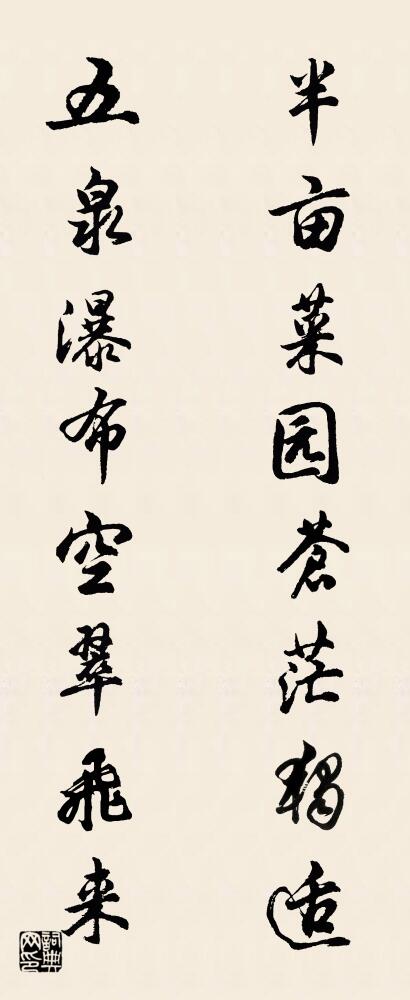 半亩菜园苍茫独适
五泉瀑布空翠飞来
词典网印